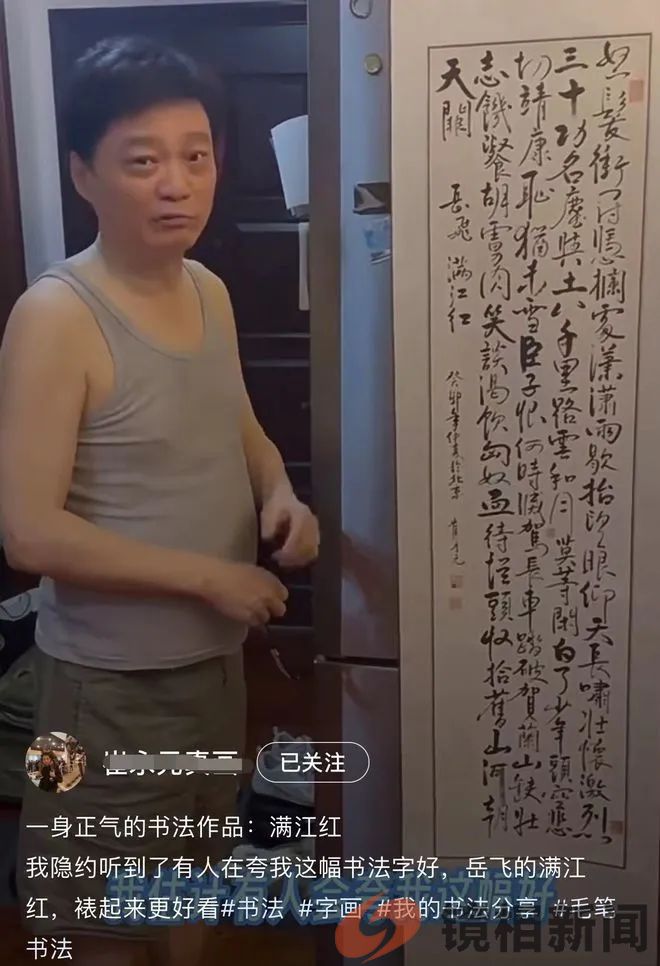 怒髮衝冠憑欄處瀟瀟雨歇抬望眼仰天長嘯壯懷激烈
三十功名塵與土八千里路雲和月莫等閑白了少年頭空悲
切靖康耻猶未雪臣子恨何時滅駕長車踏破賀蘭山缺壯
志饑餐胡虜肉笑談渴飲匈奴血待從頭收拾舊山河朝
天闕 岳飛 满江红 癸卯年仲夏於北京
已关注
一身正气的书法作品：满江红
我隐约听到了有人在夸我这幅书法字好，岳飞的满江
我估计有人会夸我这幅好
红，裱起来更好看#书法 #字画 #我的书法分享 #毛笔
书法
镜相新闻